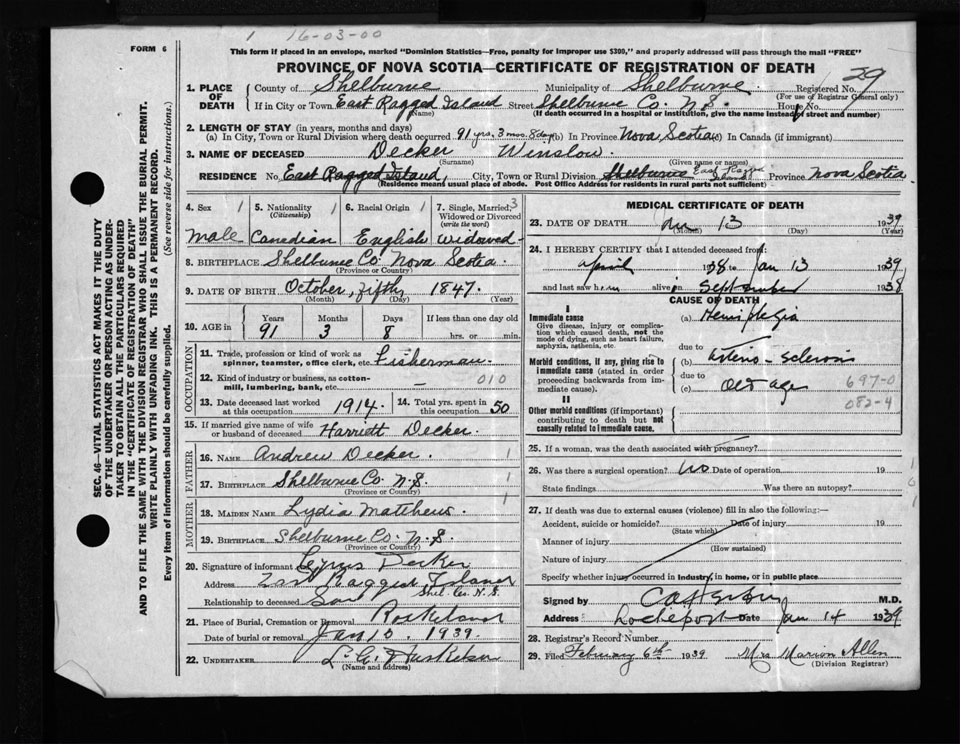 1 16-03-00
FORM 6
This form if placed in an envelope, marked "Dominion Statistics—Free, penalty for improper use $300," and properly addressed will pass through the mail "FREE"
PROVINCE OF NOVA SCOTIA—CERTIFICATE OF REGISTRATION OF DEATH
SEC. 46—VITAL STATISTICS ACT MAKES IT THE DUTY
OF THE UNDERTAKER OR PERSON ACTING AS UNDER-
TAKER TO OBTAIN ALL THE PARTICULARS REQUIRED
IN THE "CERTIFICATE OF REGISTRATION OF DEATH"
AND TO FILE THE SAME WITH THE DIVISION REGISTRAR WHO SHALL ISSUE THE BURIAL PERMIT.
WRITE PLAINLY WITH UNFADING INK. THIS IS A PERMANENT RECORD.
Every item of information should be carefully supplied. (See reverse side for instructions.)
1. PLACE OF DEATH County of Shelburne Municipality of Shelburne Registered No. 29
(For use of Registrar General only)
If in City or Town East Ragged Island Street Shelburne Co. N.S. House No.
(Name) (If death occurred in a hospital or institution, give the name instead of street and number)
2. LENGTH OF STAY (in years, months and days)
(a) In City, Town or Rural Division where death occurred 91 yrs. 3 mos. 8 days (b) In Province Nova Scotia (c) In Canada (if immigrant)
3. NAME OF DECEASED Decker Winslow
(Surname) (Given name or names)
RESIDENCE No. East Ragged Island City, Town or Rural Division Shelburne East Ragged Island Province Nova Scotia
(Residence means usual place of abode. Post Office Address for residents in rural parts not sufficient)
4. Sex 1 5. Nationality 1 6. Racial Origin 1 7. Single, Married, 3
(Citizenship) Widowed or Divorced
(write the word)
Male Canadian English Widowed
8. BIRTHPLACE Shelburne Co. Nova Scotia.
(Province or Country)
9. DATE OF BIRTH October, fifth, 1847.
(Month) (Day) (Year)
10. AGE in Years Months Days If less than one day old
91 3 8 hrs. or min.
OCCUPATION
11. Trade, profession or kind of work as
spinner, teamster, office clerk, etc. Fisherman.
12. Kind of industry or business, as cotton-
mill, lumbering, bank, etc. – 010
13. Date deceased last worked
at this occupation 1914. 14. Total yrs. spent in
this occupation 50
15. If married give name of wife
or husband of deceased Harriett Decker.
FATHER
16. NAME Andrew Decker. 1
17. BIRTHPLACE Shelburne Co. N.S. 1
(Province or Country)
MOTHER
18. MAIDEN NAME Lydia Matthews. 1
19. BIRTHPLACE Shelburne Co. N.S.
(Province or Country)
20. Signature of informant Decker
Address East Ragged Island
Shel. Co. N.S.
Relationship to deceased Son
21. Place of Burial, Cremation or Removal
Date of burial or removal 1939.
22. UNDERTAKER L.G.
(Name and address)
MEDICAL CERTIFICATE OF DEATH
23. DATE OF DEATH Jan 13 1939
(Month) (Day) (Year)
24. I HEREBY CERTIFY that I attended deceased from:
April 1938 to Jan 13 1939
and last saw him alive in September 1938
CAUSE OF DEATH
I
Immediate cause (a) Hemiplegia
Give disease, injury or complica-
tion which caused death, not the
mode of dying, such as heart failure,
asphyxia, asthenia, etc.
due to
Morbid conditions, if any, giving rise to (b) Arterio-sclerosis
immediate cause (stated in order
proceeding backwards from im-
mediate cause).
due to
(c) Old age 697-0
II 082-4
Other morbid conditions (if important)
contributing to death but not
causally related to immediate cause.
25. If a woman, was the death associated with pregnancy?
26. Was there a surgical operation? No Date of operation 19
State findings Was there an autopsy?
27. If death was due to external causes (violence) fill in also the following:—
Accident, suicide or homicide? Date of injury 19
(State which)
Manner of injury
(How sustained)
Nature of injury
Specify whether injury occurred in Industry, in home, or in public place
Signed by M.D.
Address Lockeport Date Jan 14 1939
28. Registrar's Record Number
29. Filed February 6th 1939 Mrs Marion Allen
(Division Registrar)